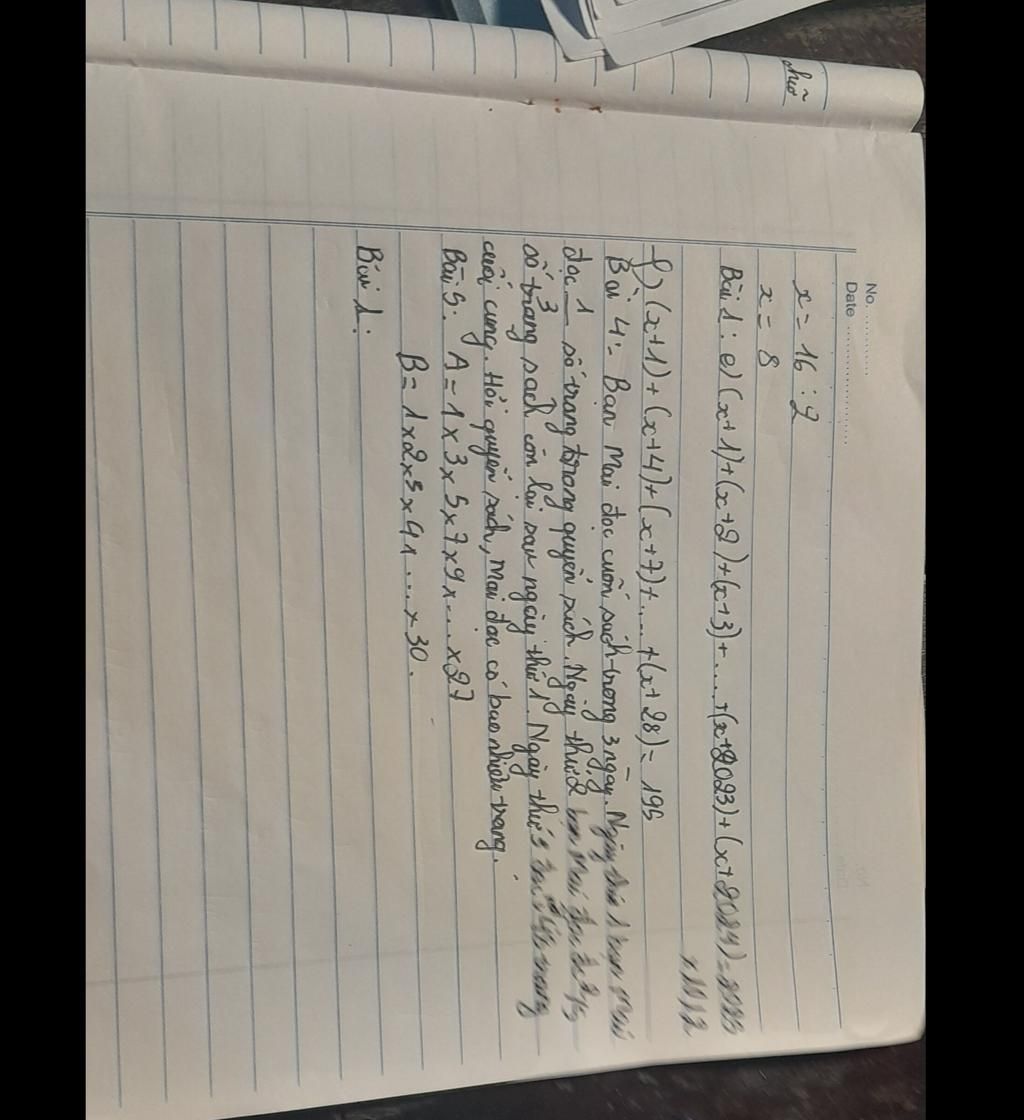 chữ
No.
Date
x = 16 : 2
x = 8
Bài 1: e) (x+1)+(x+2)+(x+3)+.....+(x+2023)+(x+2024)=
f) (x+1)+(x+4)+(x+7)+....+(x+28)= 195
Bài 4: Bạn Mai đọc cuốn sách trong 3 ngày. Ngày thứ 1 bạn Mai
đọc 1/3 số trang trong quyển sách. Ngày thứ 2 bạn Mai
số trang sách còn lại sau ngày thứ 1. Ngày thứ 3 trang
cuối cùng. Hỏi quyển sách, Mai đọc có bao nhiêu trang.
Bài 5: A = 1 x 3 x 5 x 7 x 9 x .... x 27
B = 1 x 2 x 3 x 4 x .... x 30.
Bài 1: